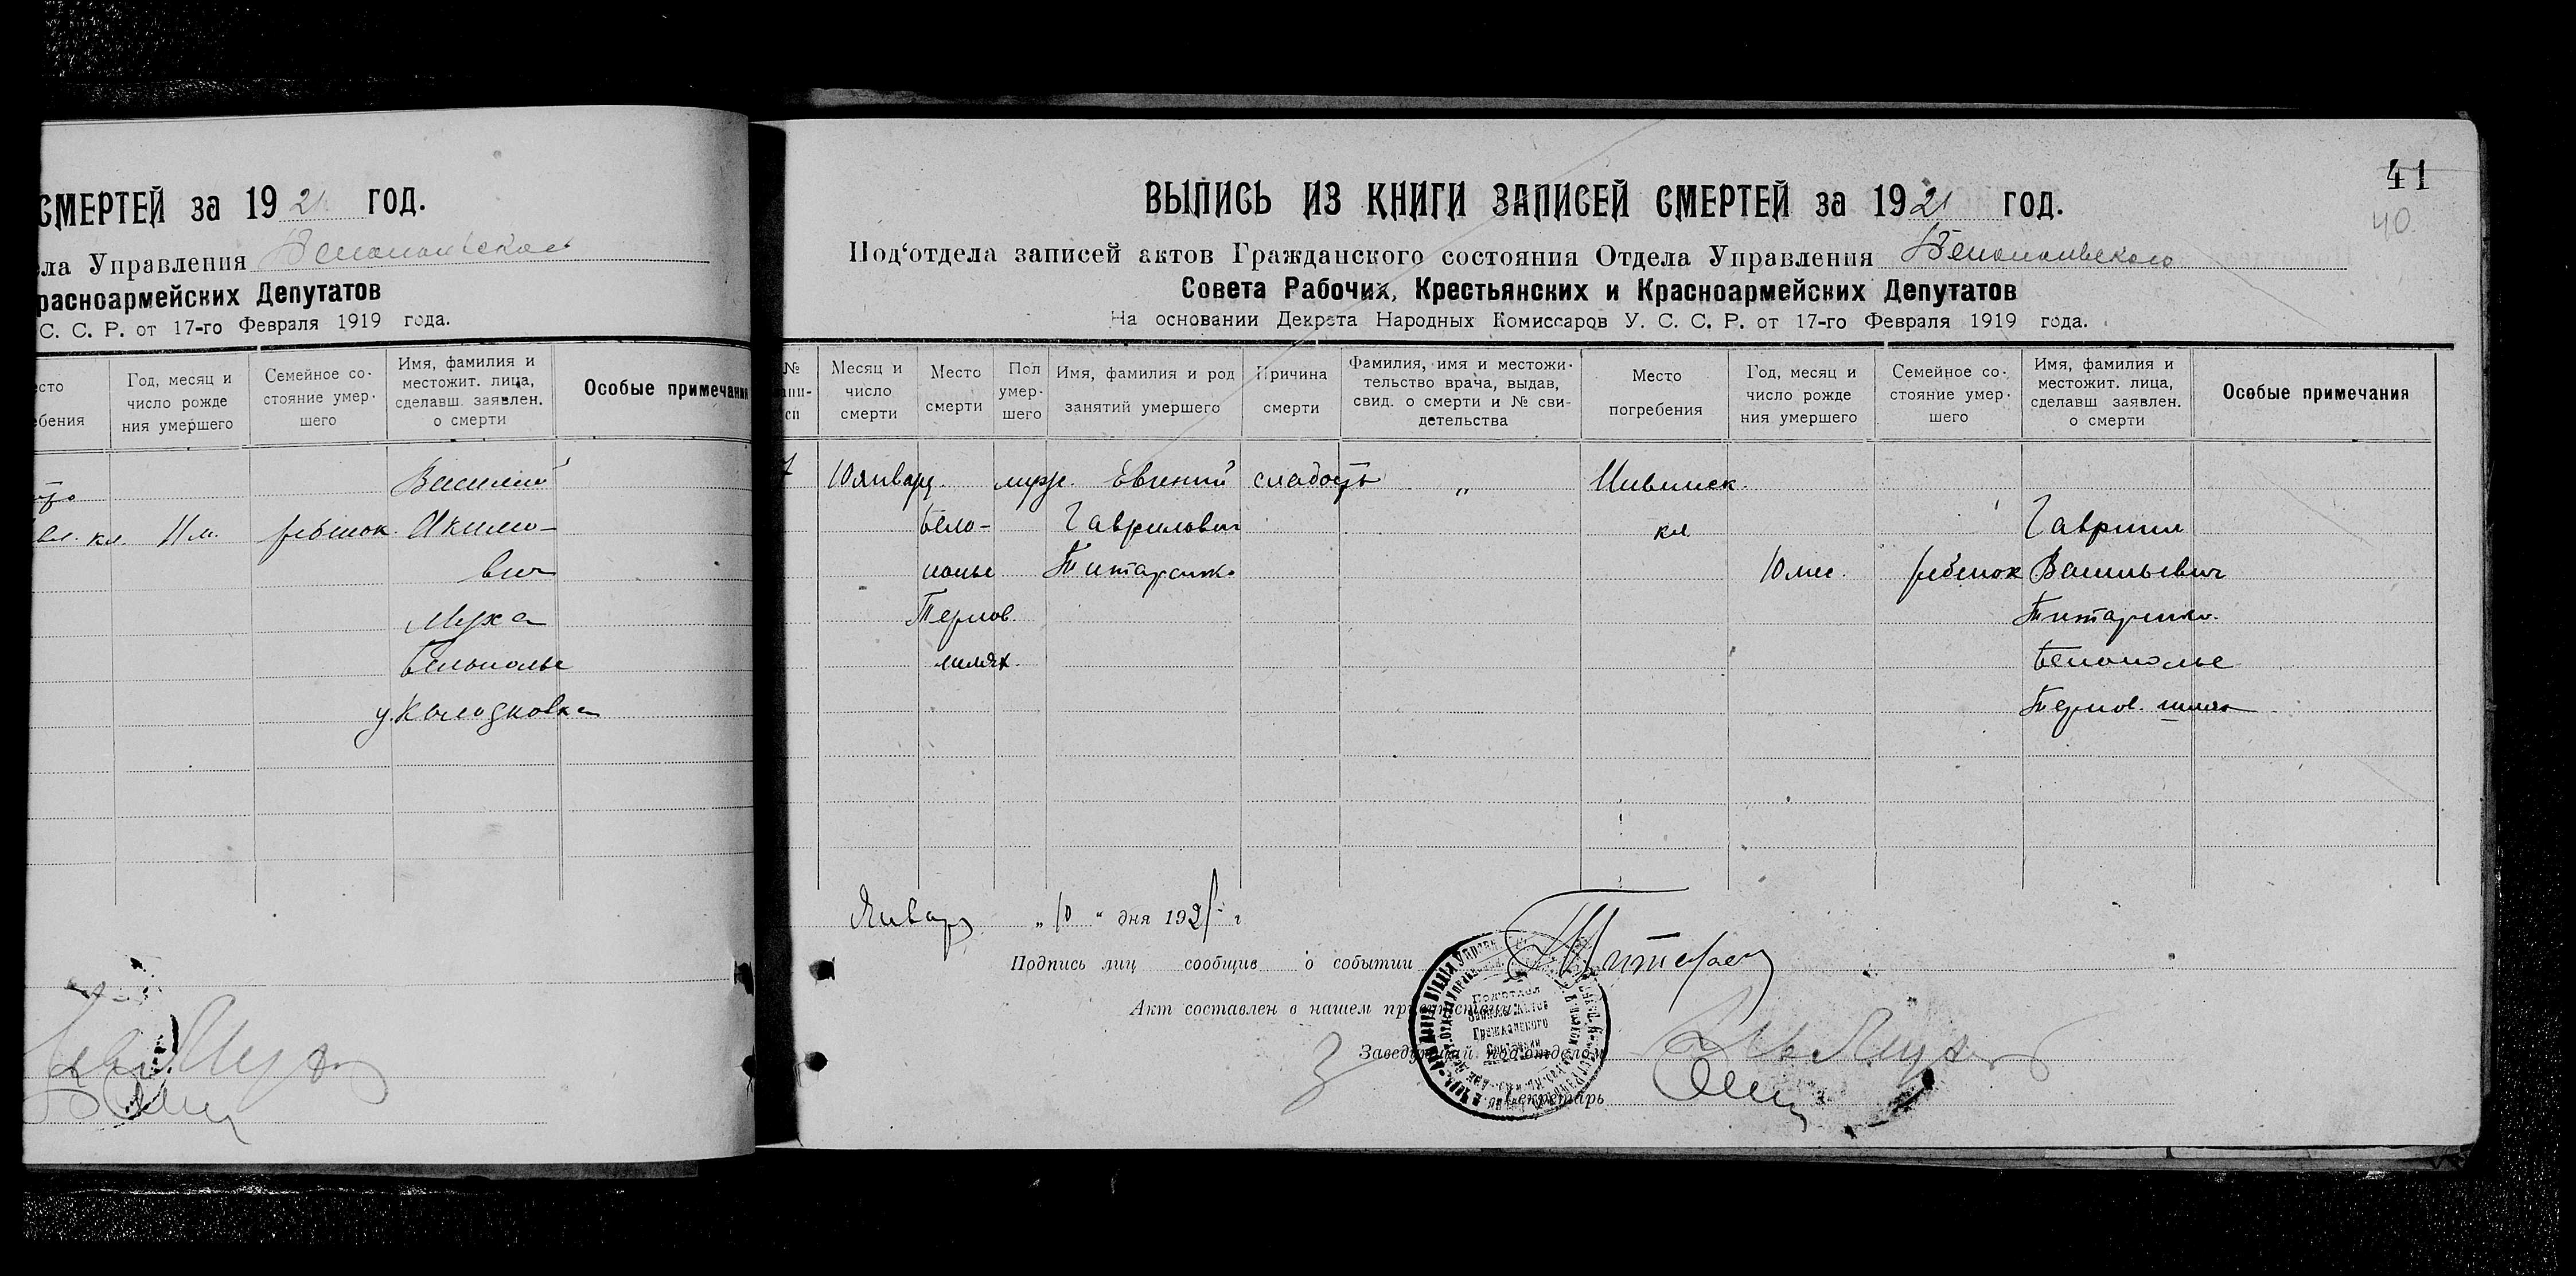 СМЕРТЕЙ за 1921 год.
ла Управления Белопольского
расноармейских Депутатов
С. С. Р. от 17-го Февраля 1919 года.
есто
ебения
Год, месяц и
число рожде
ния умершего
Семейное со-
стояние умер-
шего
Имя, фамилия и
местожит. лица,
сделавш. заявлен.
о смерти
Особые примечания
Василий
кл. 11 м. ребенок Акимо-
вич
Муха
Белополье
41
40.
ВЫПИСЬ ИЗ КНИГИ ЗАПИСЕЙ СМЕРТЕЙ за 1921 год.
Под'отдела записей актов Гражданского состояния Отдела Управления Белопольского
Совета Рабочих, Крестьянских и Красноармейских Депутатов
На основании Декрета Народных Комиссаров У. С. С. Р. от 17-го Февраля 1919 года.
№
апи-
си
Месяц и
число
смерти
Место
смерти
Пол
умер-
шего
Имя, фамилия и род
занятий умершего
Причина
смерти
Фамилия, имя и местожи-
тельство врача, выдав,
свид. о смерти и № сви-
детельства
Место
погребения
Год, месяц и
число рожде
ния умершего
Семейное со-
стояние умер-
шего
Имя, фамилия и
местожит. лица,
сделавш заявлен.
о смерти
Особые примечания
7 10 январ. муж. Евгений слабость „
Бело- Гаврилович кл Гавриил
полье Титаренко 10 мес. ребенок Васильевич
Тернов. Титаренко.
шлях. Белополье
Тернов. шлях
Январ „10“ дня 1921 г
Подпись лиц сообщив о событии
Акт составлен в нашем присутствии
Заведующий под'отделом
Секретарь
Под'отдел
Записи Актов
Гражданского
Состояния